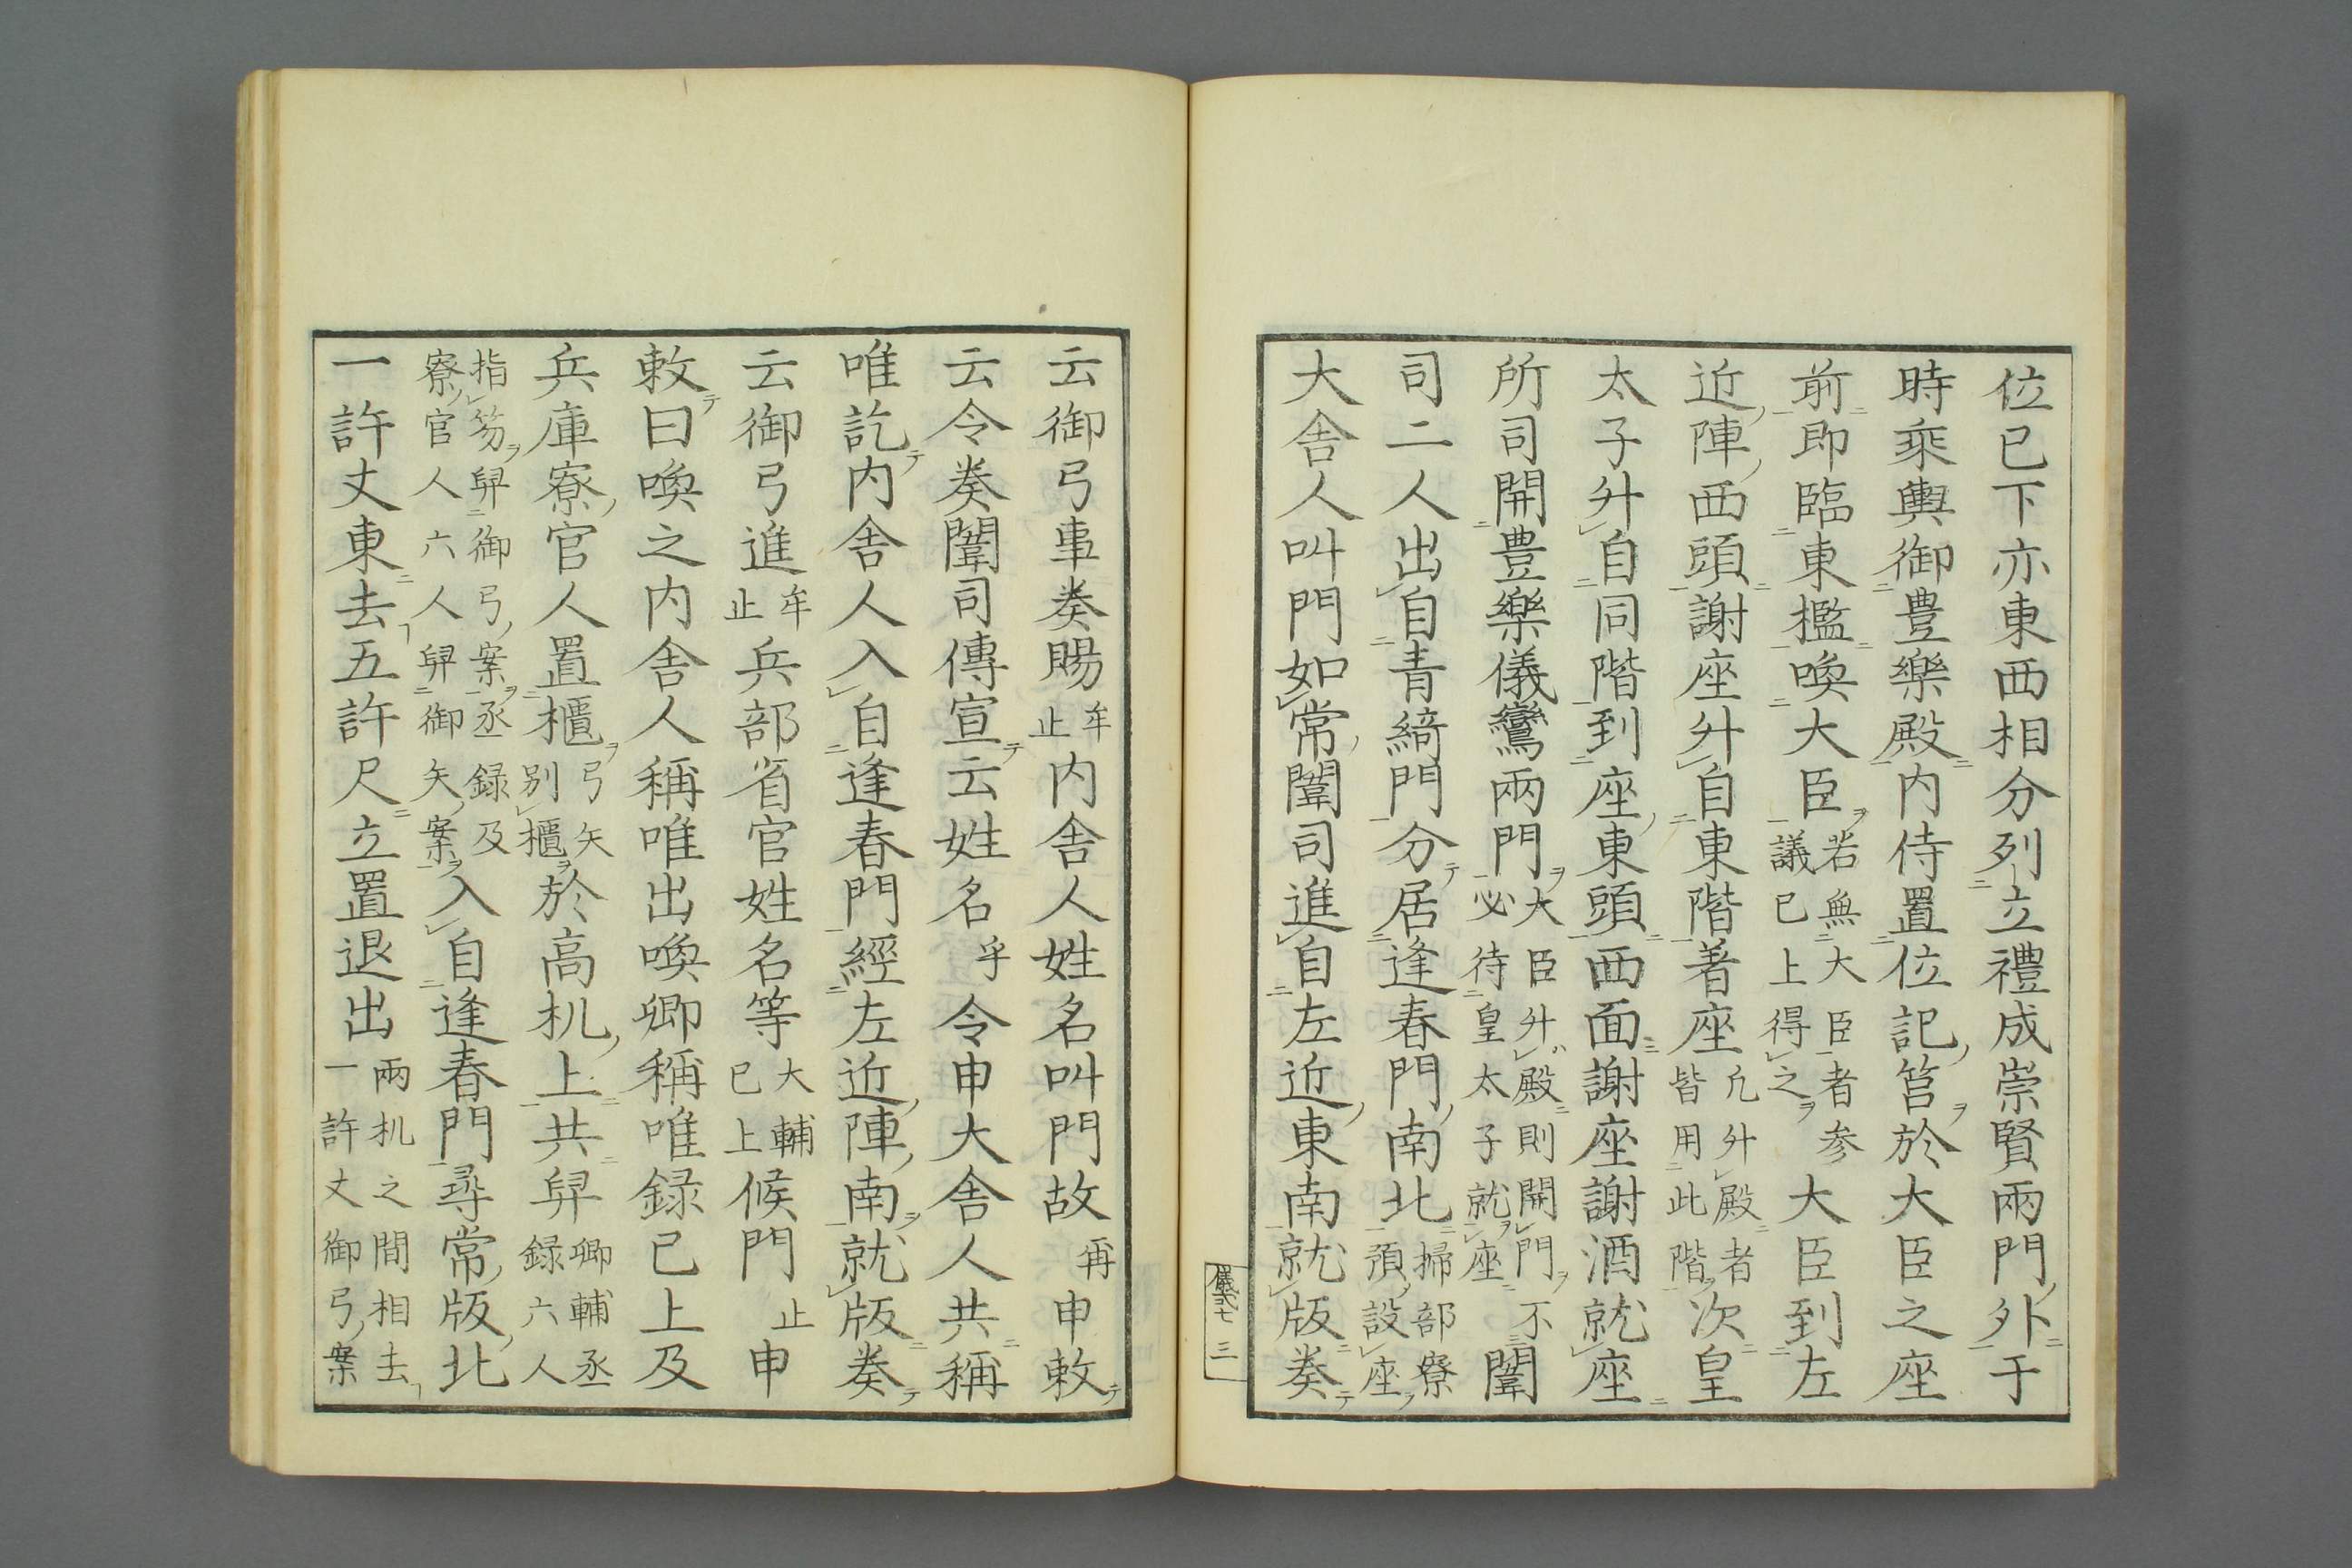 位已下亦東西相分列立禮成崇賢兩門外于
時乘輿御豊樂殿内侍置位記筥於大臣之座
前即臨東檻喚大臣若無大臣者参議已上得之大臣到左
近陣西頭謝座升自東階著座凢升殿者皆用此階次皇
太子升自同階到座東頭西面謝座謝酒就座
所司開豊樂儀鸞兩門大臣升殿則開門不必待皇太子就座闈
司二人出自青綺門分居逢春門南北掃部寮預設座
大舍人叫門如常闈司進自左近東南就版奏
儀式七 三
云御弓事奏賜牟止内舍人姓名叫門故再申敕
云令奏闈司傳宣云姓名乎令申大舍人共稱
唯訖内舍人入自逢春門經左近陣南就版奏
云御弓進牟止兵部省官姓名等大輔已上候門止申
敕曰喚之内舍人稱唯出喚卿稱唯録已上及
兵庫寮官人置櫃弓矢别櫃於高机上共舁卿輔丞録六人
指笏舁御弓案丞録及寮官人六人舁御矢案入自逢春門尋常版北
一許丈東去五許尺立置退出兩机之間相去一許丈御弓案